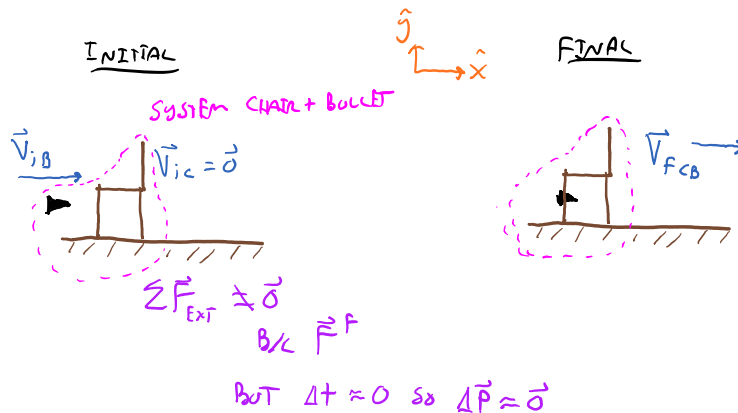 INITIAL
ŷ
x̂
FINAL
SYSTEM CHAIR + BULLET
V⃗iB
V⃗iC = 0⃗
V⃗fCB
ΣF⃗EXT ≠ 0⃗
B/C F⃗^F
BUT Δt ≈ 0 so ΔP⃗ ≈ 0⃗